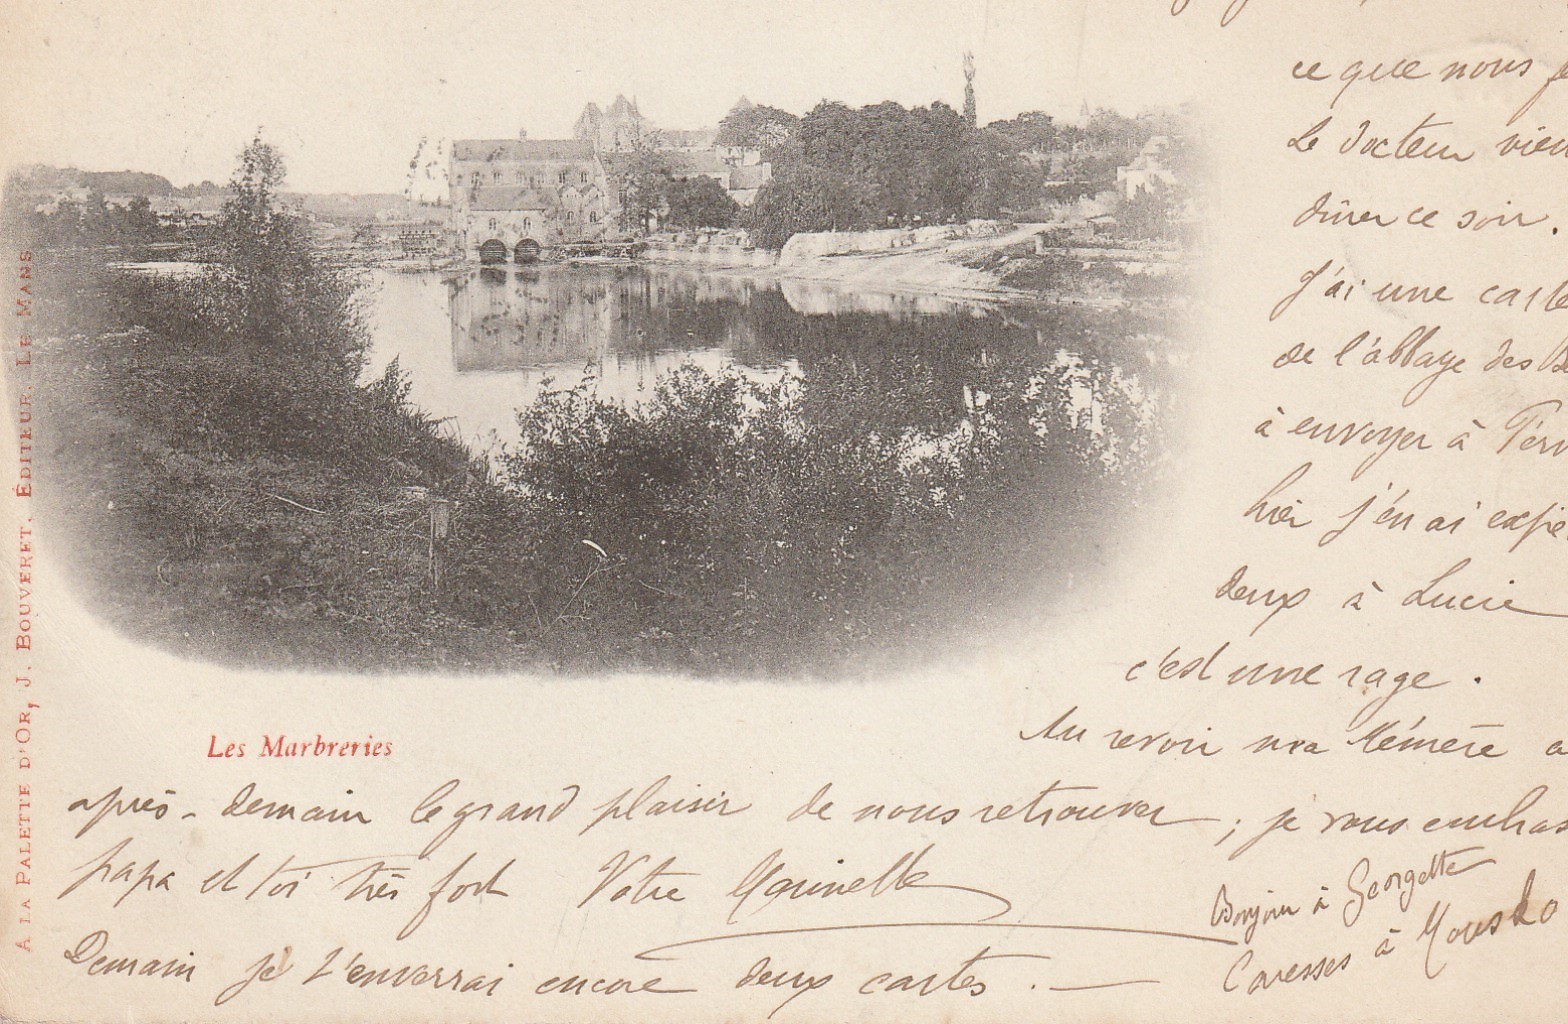 ce que nous
Le docteur
dîner ce soir.
J'ai une carte
de l'abbaye des
à envoyer à
hier j'en ai
deux à Lucie
c'est une rage.
Au revoir ma Mémère
après-demain le grand plaisir de nous retrouver; je vous
papa et toi très fort Votre
Bonjour à Georgette
Caresses à
Demain je t'enverrai encore deux cartes.
Les Marbreries
A LA PALETTE D'OR, J. BOUVERET, ÉDITEUR. LE MANS